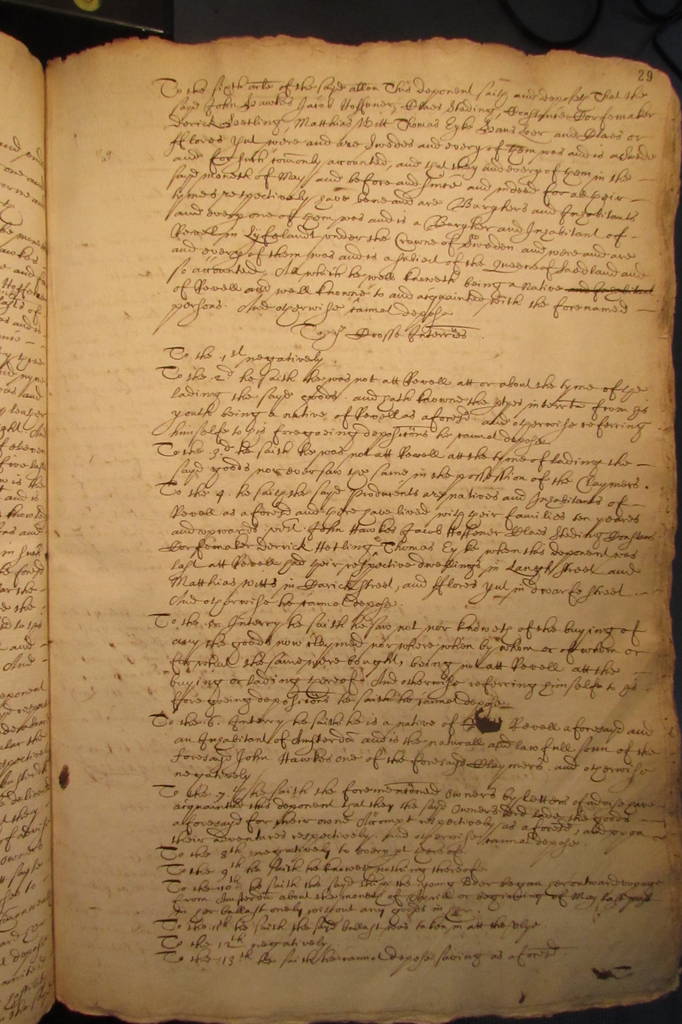 29
To the sixth arle of the sayd allon This deponent saith and deposeth That the
sayd John Hawkes Jacob Hoffener, Claes Stading,
Derrick Hetling, Matthias Witt Thomas Eyke and Claes or
fflores Put were and are Swedes and every of them was and is a Swede
and for such comonly accounted, and that they and every of them in the
sayd moneth of May and before and since and indeed for all their
tymes respectively have bene and are Burghers and Inhabitants
and every one of them was and is a Burgher and Inhabitant of
Revell in Lyfeland under the Crowne of Sweden and were and are
and every of them was and is a subiect of the Queene of Swedland and
so accounted, All which he well knoweth being a native and Inhabitant
of Revell and well knowne to and acquainted with the forenamed
persons. And otherwise cannot depose
To the Crosse Interries
To the 1st negatively
To the 2d he saith hee was not att Revell att or about the tyme of the
lading the sayd goods and hath knowne the from his
youth being a native of Revell as aforesd and otherwise referring
himselfe to his foregoeing depositions he cannot depose
To the 3d he saith he was not att Revell att the tyme of lading the
sayd goods nor ever saw the same in the possession of the Claymers.
To the 4. he saith the sayd producents are natives and Inhabitants of
Revell as aforesd and there have lived with their families ten yeares
and upwards John Hawkes Jacob Hoffener Claes Stading
Derrick Hetling Thomas Eyke when this deponent was
last att Revell had their respective dwellings in Langh street and
Matthias Witts in street, and fflores Put in street
And otherwise he cannot depose.
To the 5. Interry he saith he saw not nor knoweth of the buying of
any the goods now claymed nor where when by whom or of whom or
for what the same were bought, being not att Revell att the
buying or lading thereof And otherwise referring himselfe to his
foregoeing depositions he saith he cannot depose
To the 6. Interry he saith he is a native of Revell aforesayd and
an Inhabitant of Amsterdam and is the naturall and lawfull sonn of the
foresayd John Hawkes one of the foresayd Claymers and otherwise
negatively
To the 7th he saith the forementioned owners by letters of advise have
acquainted this deponent that they the sayd owners did lade the goods
aforesayd for their owne Accompt respectively as aforesd, and upon
their adventures respectively. And otherwise cannot depose.
To the 8th negatively to every part thereof
To the 9th he saith he knoweth nothing thereof
To the 10th he saith the sayd shipp the young Beer began her outward voyage
from Amsterdam about the moneth of Aprill or beginning of May last past
in her ballast onely without any goods in her.
To the 11th he saith the sayd ballast was taken in att the Vlye
To the 12th negatively
To the 13th he saith he cannot depose saving as aforesd